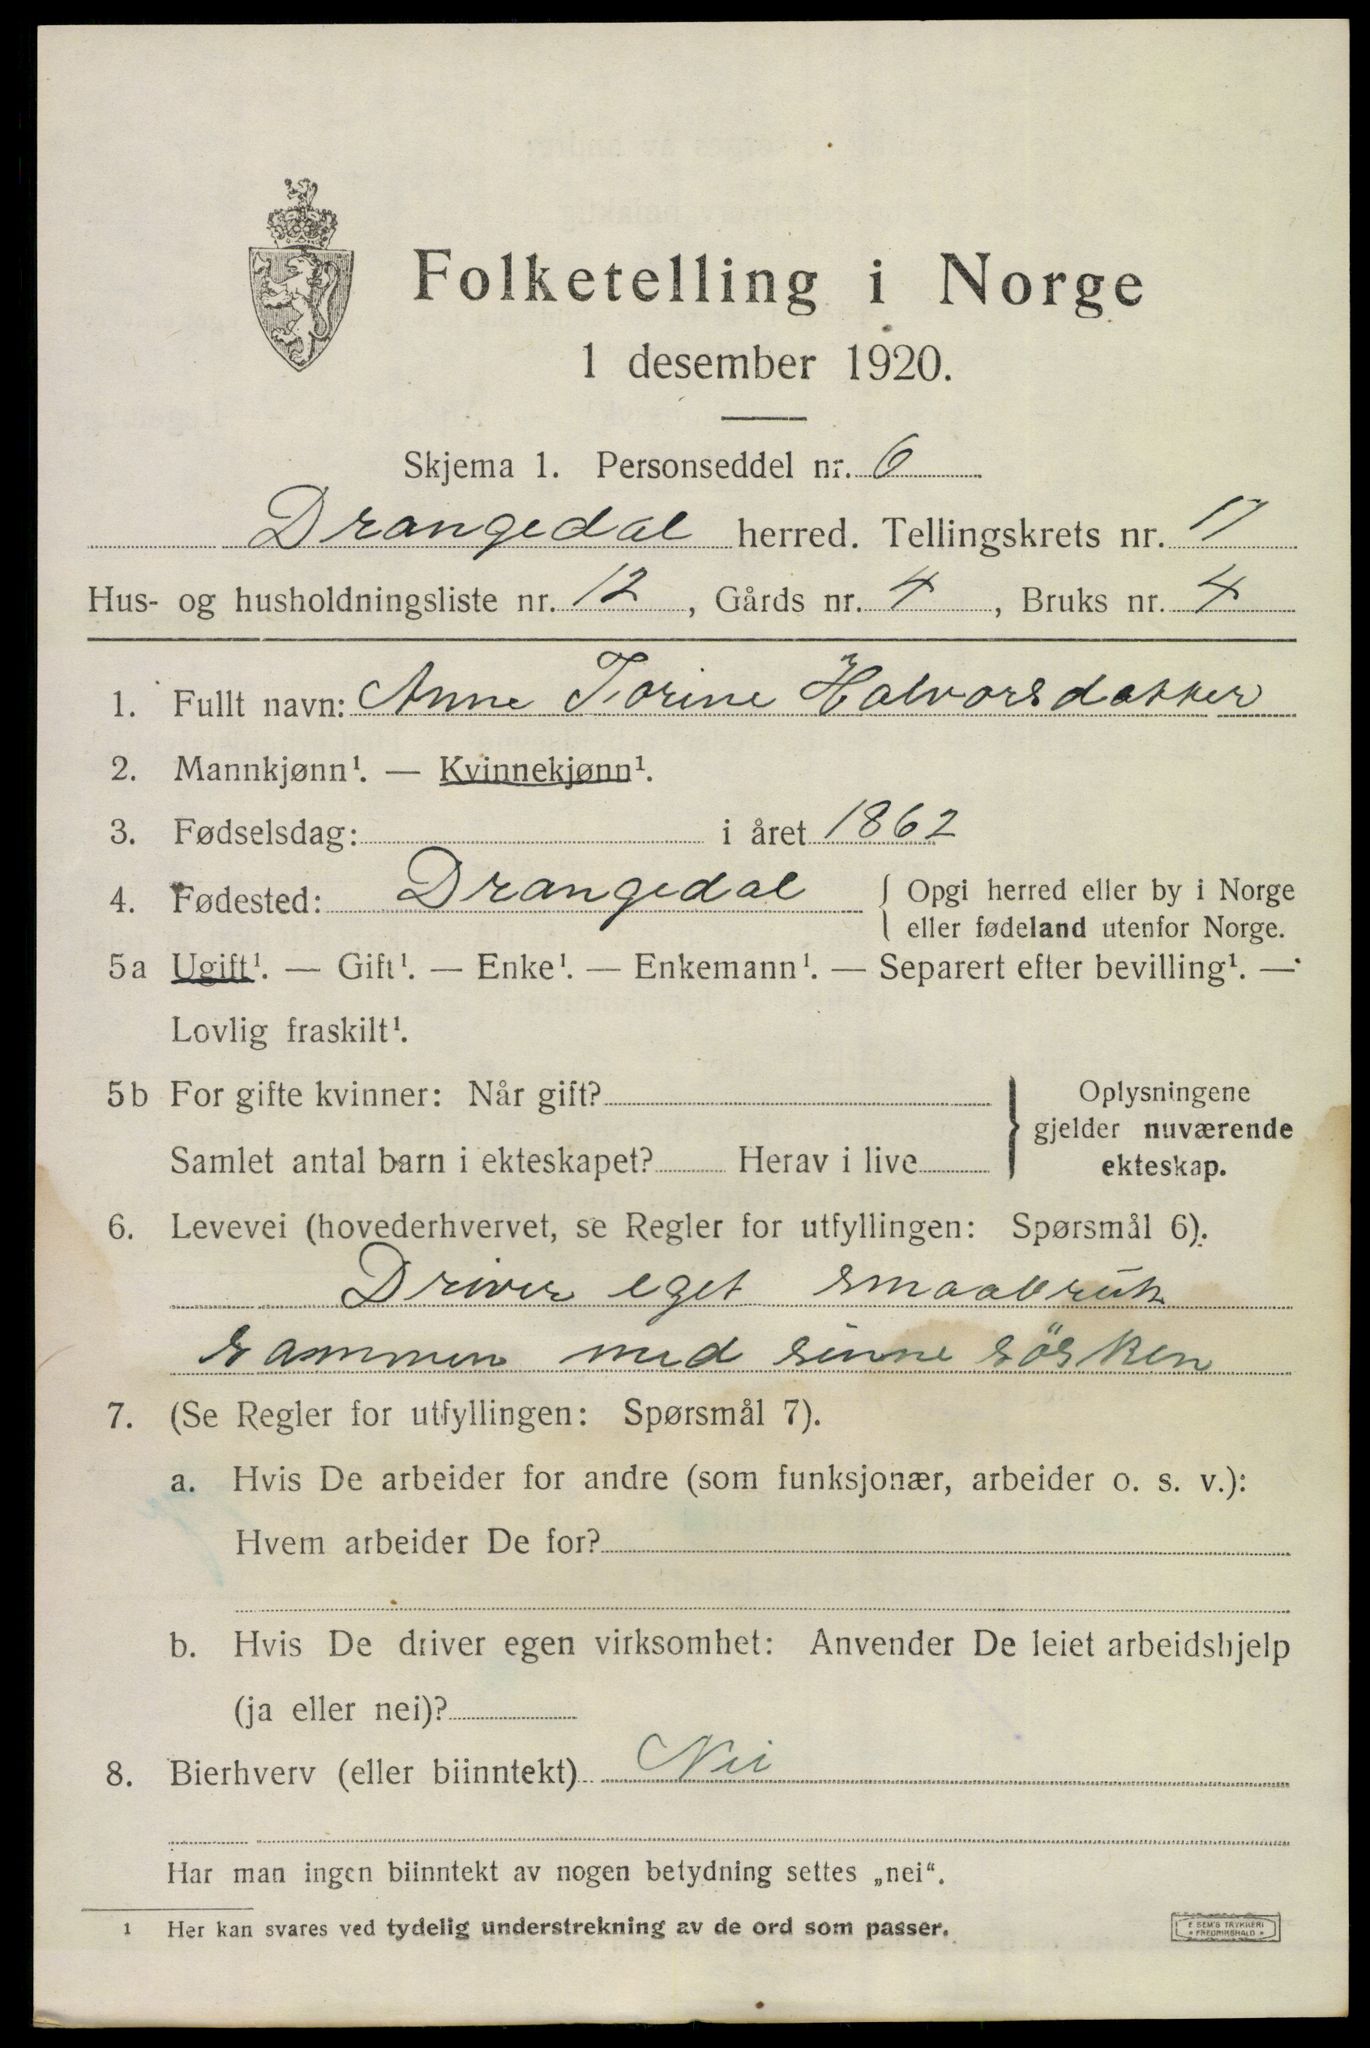 Folketelling i Norge
1 desember 1920.
Skjema 1. Personseddel nr. 6
Drangedal herred. Tellingskrets nr. 17
Hus- og husholdningsliste nr. 12, Gårds nr. 4, Bruks nr. 4
1. Fullt navn: Anne Torine Halvorsdatter
2. Mannkjønn¹. — Kvinnekjønn¹.
3. Fødselsdag: i året 1862
4. Fødested: Drangedal { Opgi herred eller by i Norge
eller fødeland utenfor Norge.
5a Ugift¹. — Gift¹. — Enke¹. — Enkemann¹. — Separert efter bevilling¹. —
Lovlig fraskilt¹.
5b For gifte kvinner: Når gift?
Samlet antal barn i ekteskapet? Herav i live
} Oplysningene
gjelder nuværende
ekteskap.
6. Levevei (hovederhvervet, se Regler for utfyllingen: Spørsmål 6).
Driver eget smaabruk
sammen med sinne søsken
7. (Se Regler for utfyllingen: Spørsmål 7).
a. Hvis De arbeider for andre (som funksjonær, arbeider o. s. v.):
Hvem arbeider De for?
b. Hvis De driver egen virksomhet: Anvender De leiet arbeidshjelp
(ja eller nei)?
8. Bierhverv (eller biinntekt) Nei
Har man ingen biinntekt av nogen betydning settes „nei“.
¹ Her kan svares ved tydelig understrekning av de ord som passer.
E SEM'S TRYKKERI
* FREDRIKSHALD *